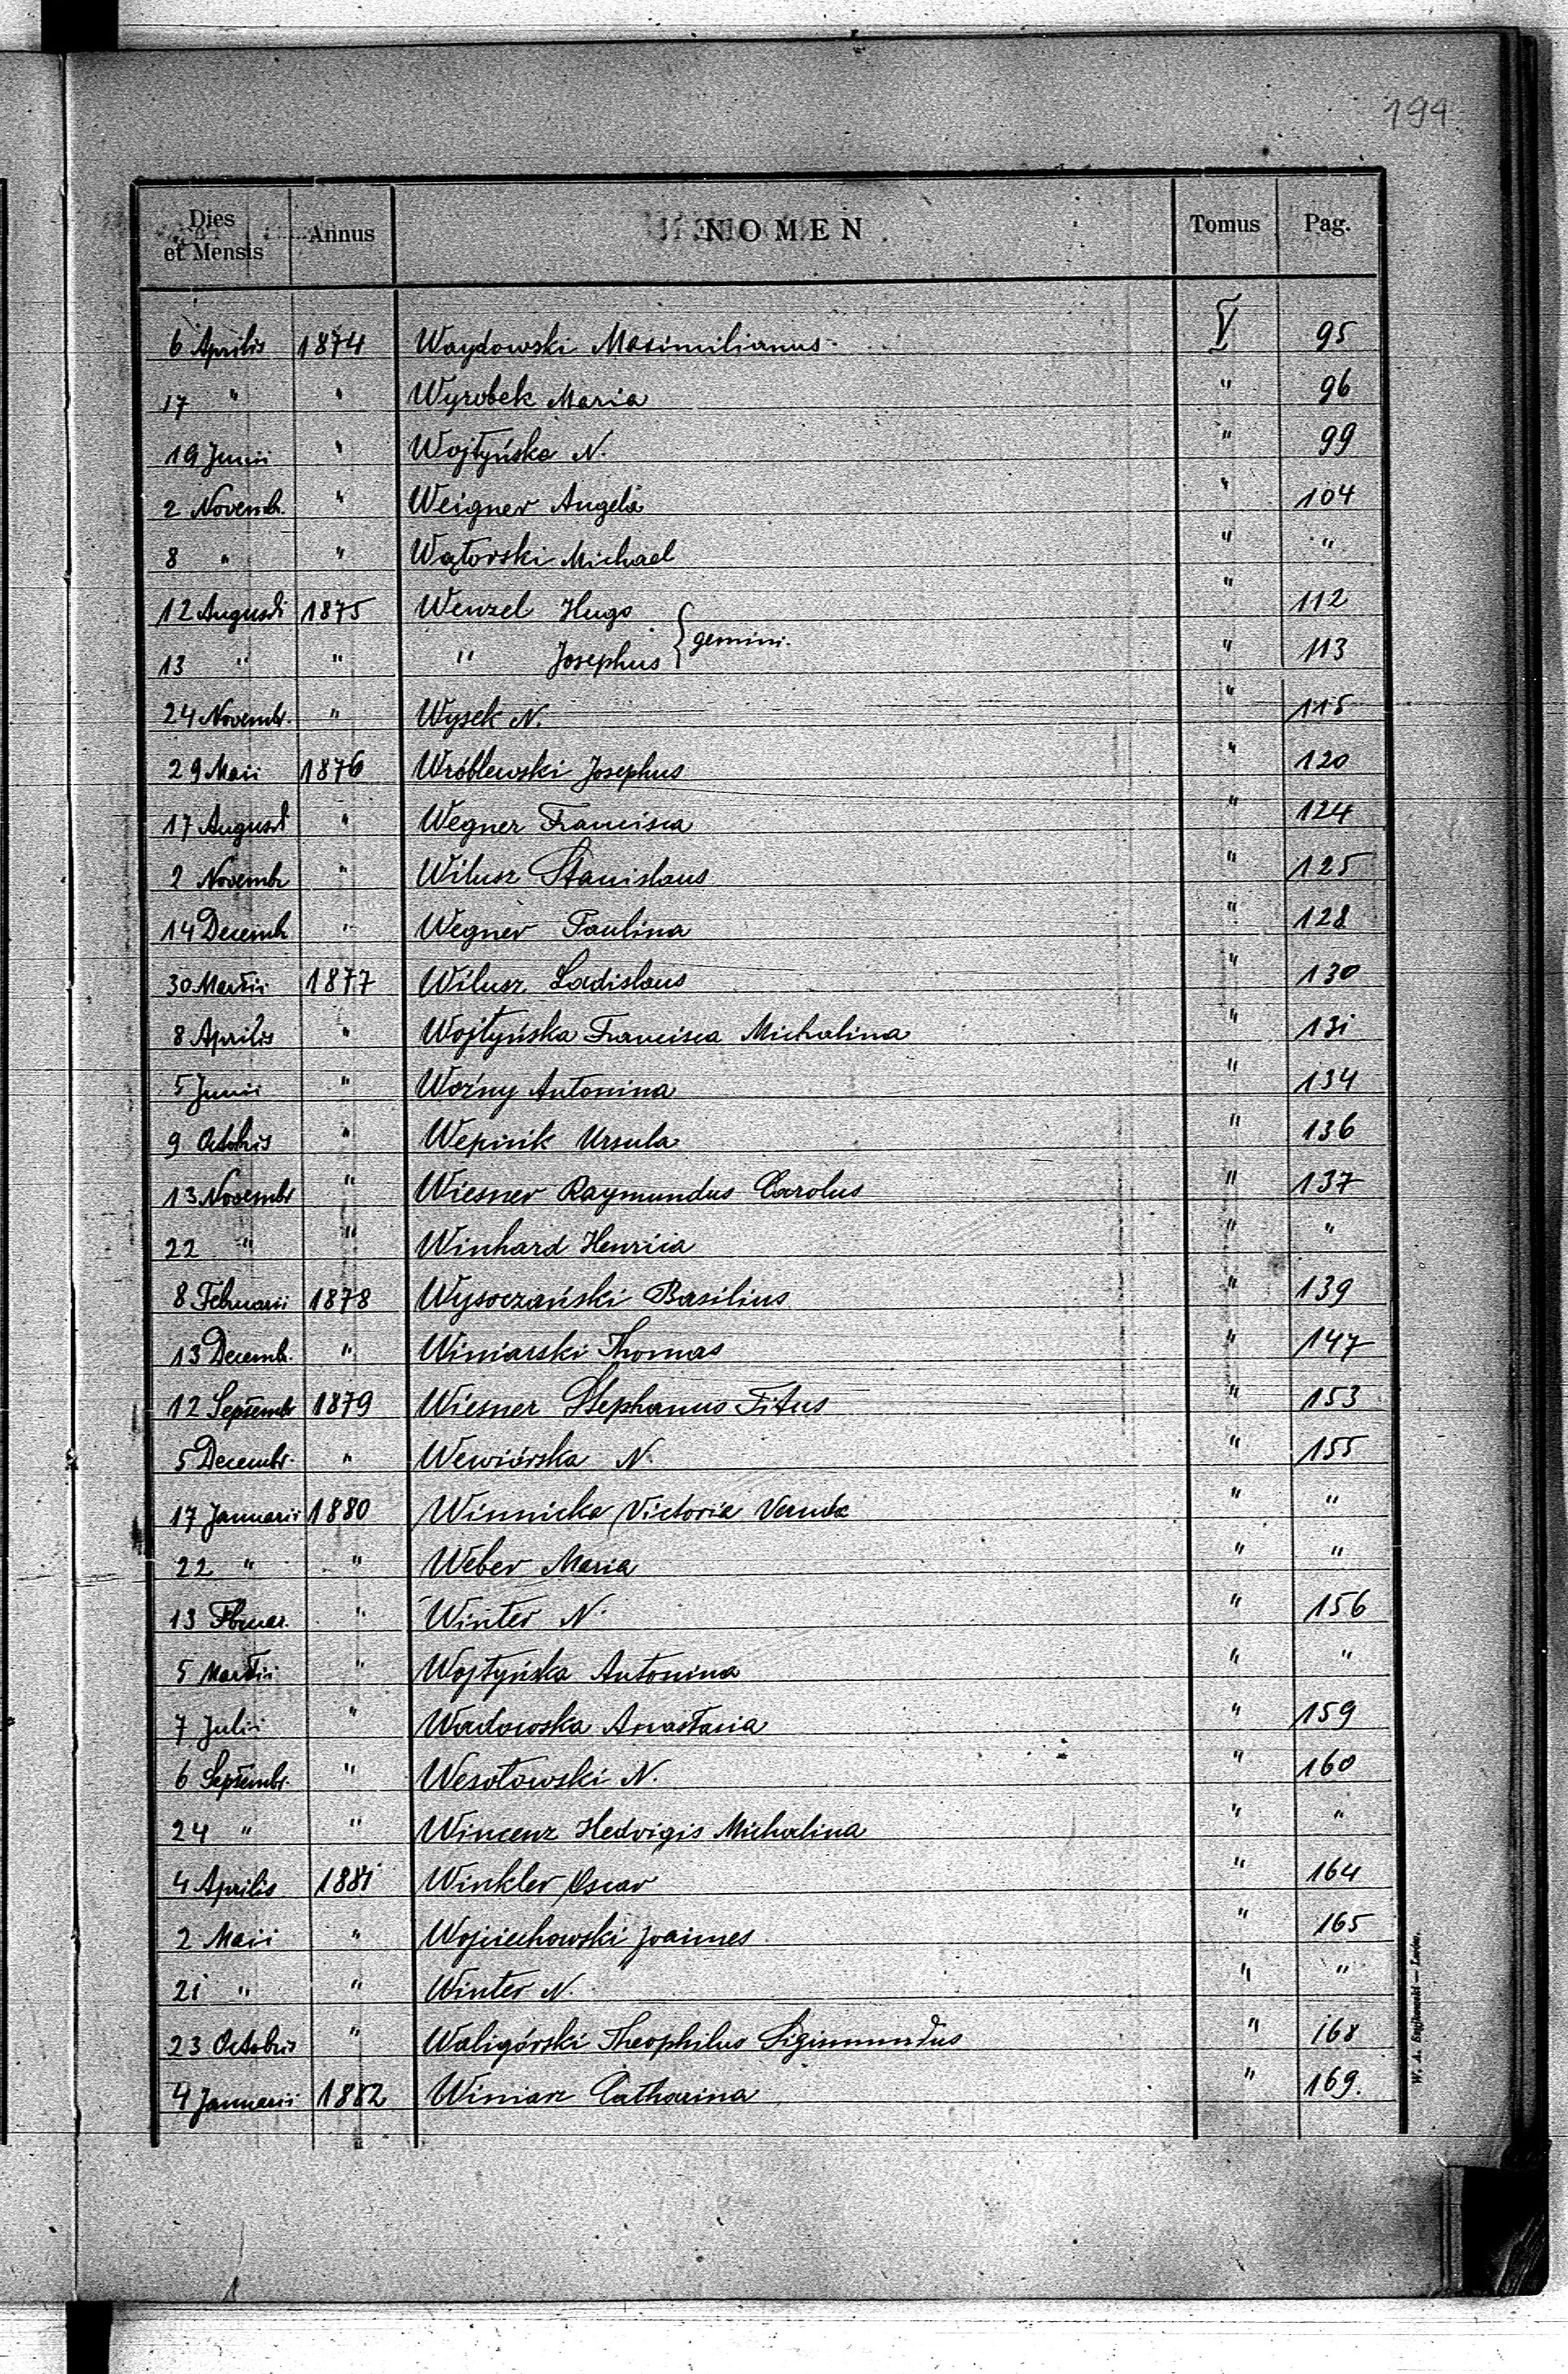 194
Dies et Mensis Annus NOMEN Tomus Pag.
6 Aprilis 1874 Waydowski Maximilianus V 95
17 " " Wyrobek Maria " 96
19 Junii " Wojtyńska N. " 99
2 Novemb. " Weigner Angela " 104
8 " " Wątorski Michael " "
12 Augusti 1875 Wenzel Hugo " 112
gemini.
13 " " " Josephus " 113
24 Novembr. " Wysek N. " 115
29 Maii 1876 Wróblewski Josephus " 120
17 Augusti " Wegner Francisca " 124
2 Novembr " Wilusz Stanislaus " 125
14 Decemb " Wegner Paulina " 128
30 Martii 1877 Wilusz Ladislaus " 130
8 Aprilis " Wojtyńska Francisca Michalina " 131
5 Junii " Woźny Antonina " 134
9 Octobris " Wepirik Ursula " 136
13 Novembr " Wiesner Raymundus Carolus " 137
22 " " Winhard Henrica " "
8 Februarii 1878 Wysoczański Basilius " 139
13 Decemb. " Winiarski Thomas " 147
12 Septembr 1879 Wiesner Stephanus Titus " 153
5 Decembr. " Wewiórska N. " 155
17 Januarii 1880 Winnicka Victoria " "
22 " " Weber Maria " "
13 Februar. " Winter N. " 156
5 Martii " Wojtyńska Antonina " "
7 Julii " Wadowska Anastasia " 159
6 Septembr. " Wesołowski N. " 160
24 " " Wincenz Hedvigis Michalina " "
4 Aprilis 1881 Winkler Oscar " 164
2 Maii " Wojciechowski Joannes " 165
21 " " Winter N. " "
23 Octobris " Waligórski Theophilus Sigismundus " 168
4 Januarii 1882 Winiarz Catharina " 169.